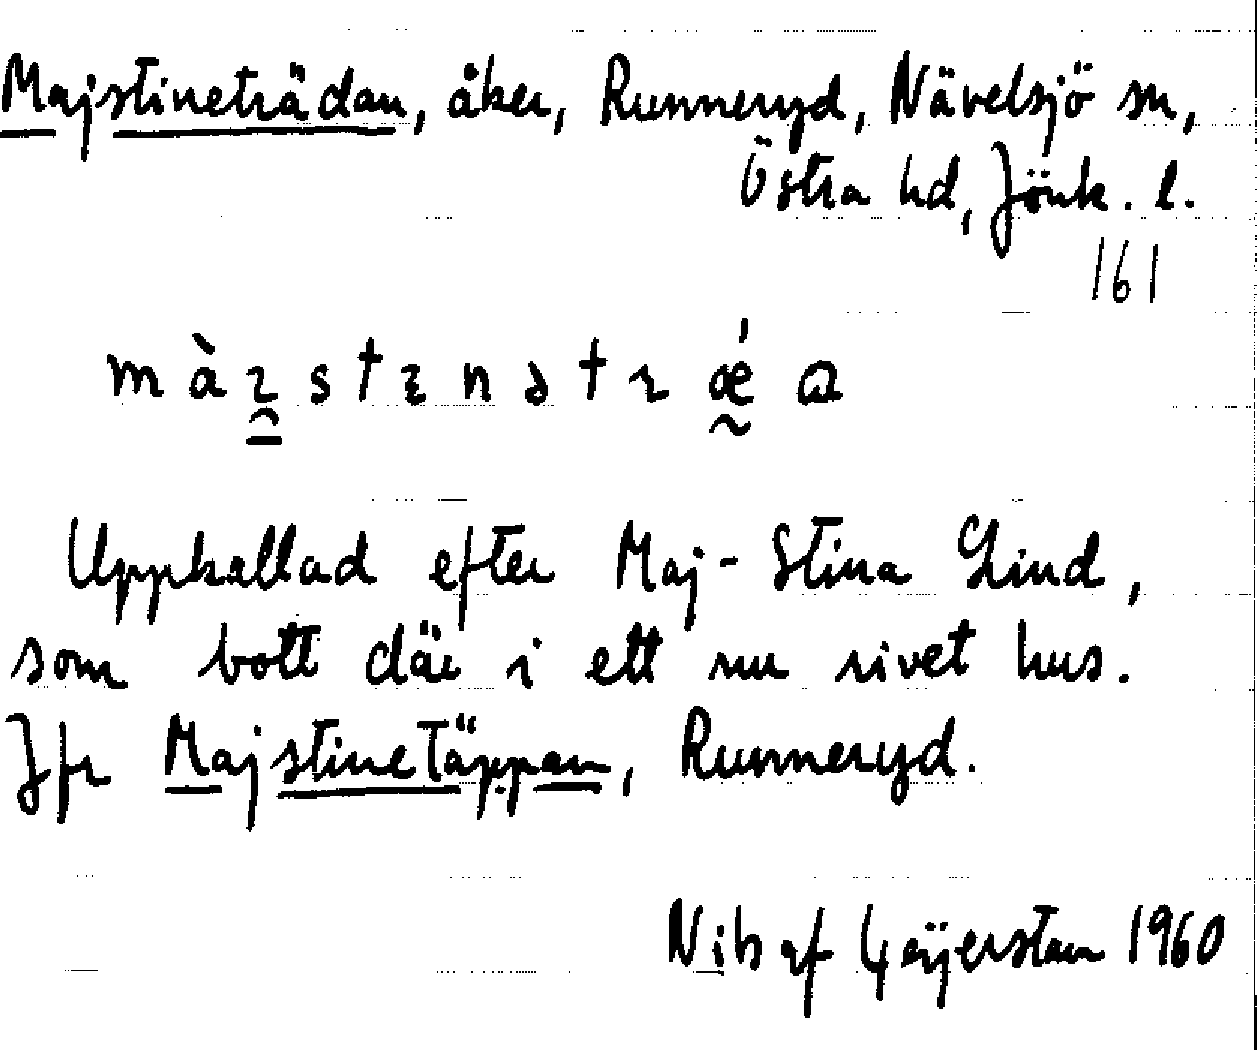 Majstineträdan, åker, Runneryd, Nävelsjö sn,
Östra hd, Jönk. l.
161
Uppkallad efter Maj-Stina Lind,
som bott där i ett nu rivet hus.
Jfr Majstinetäppan, Runneryd.
Nils af Geijerstam 1960